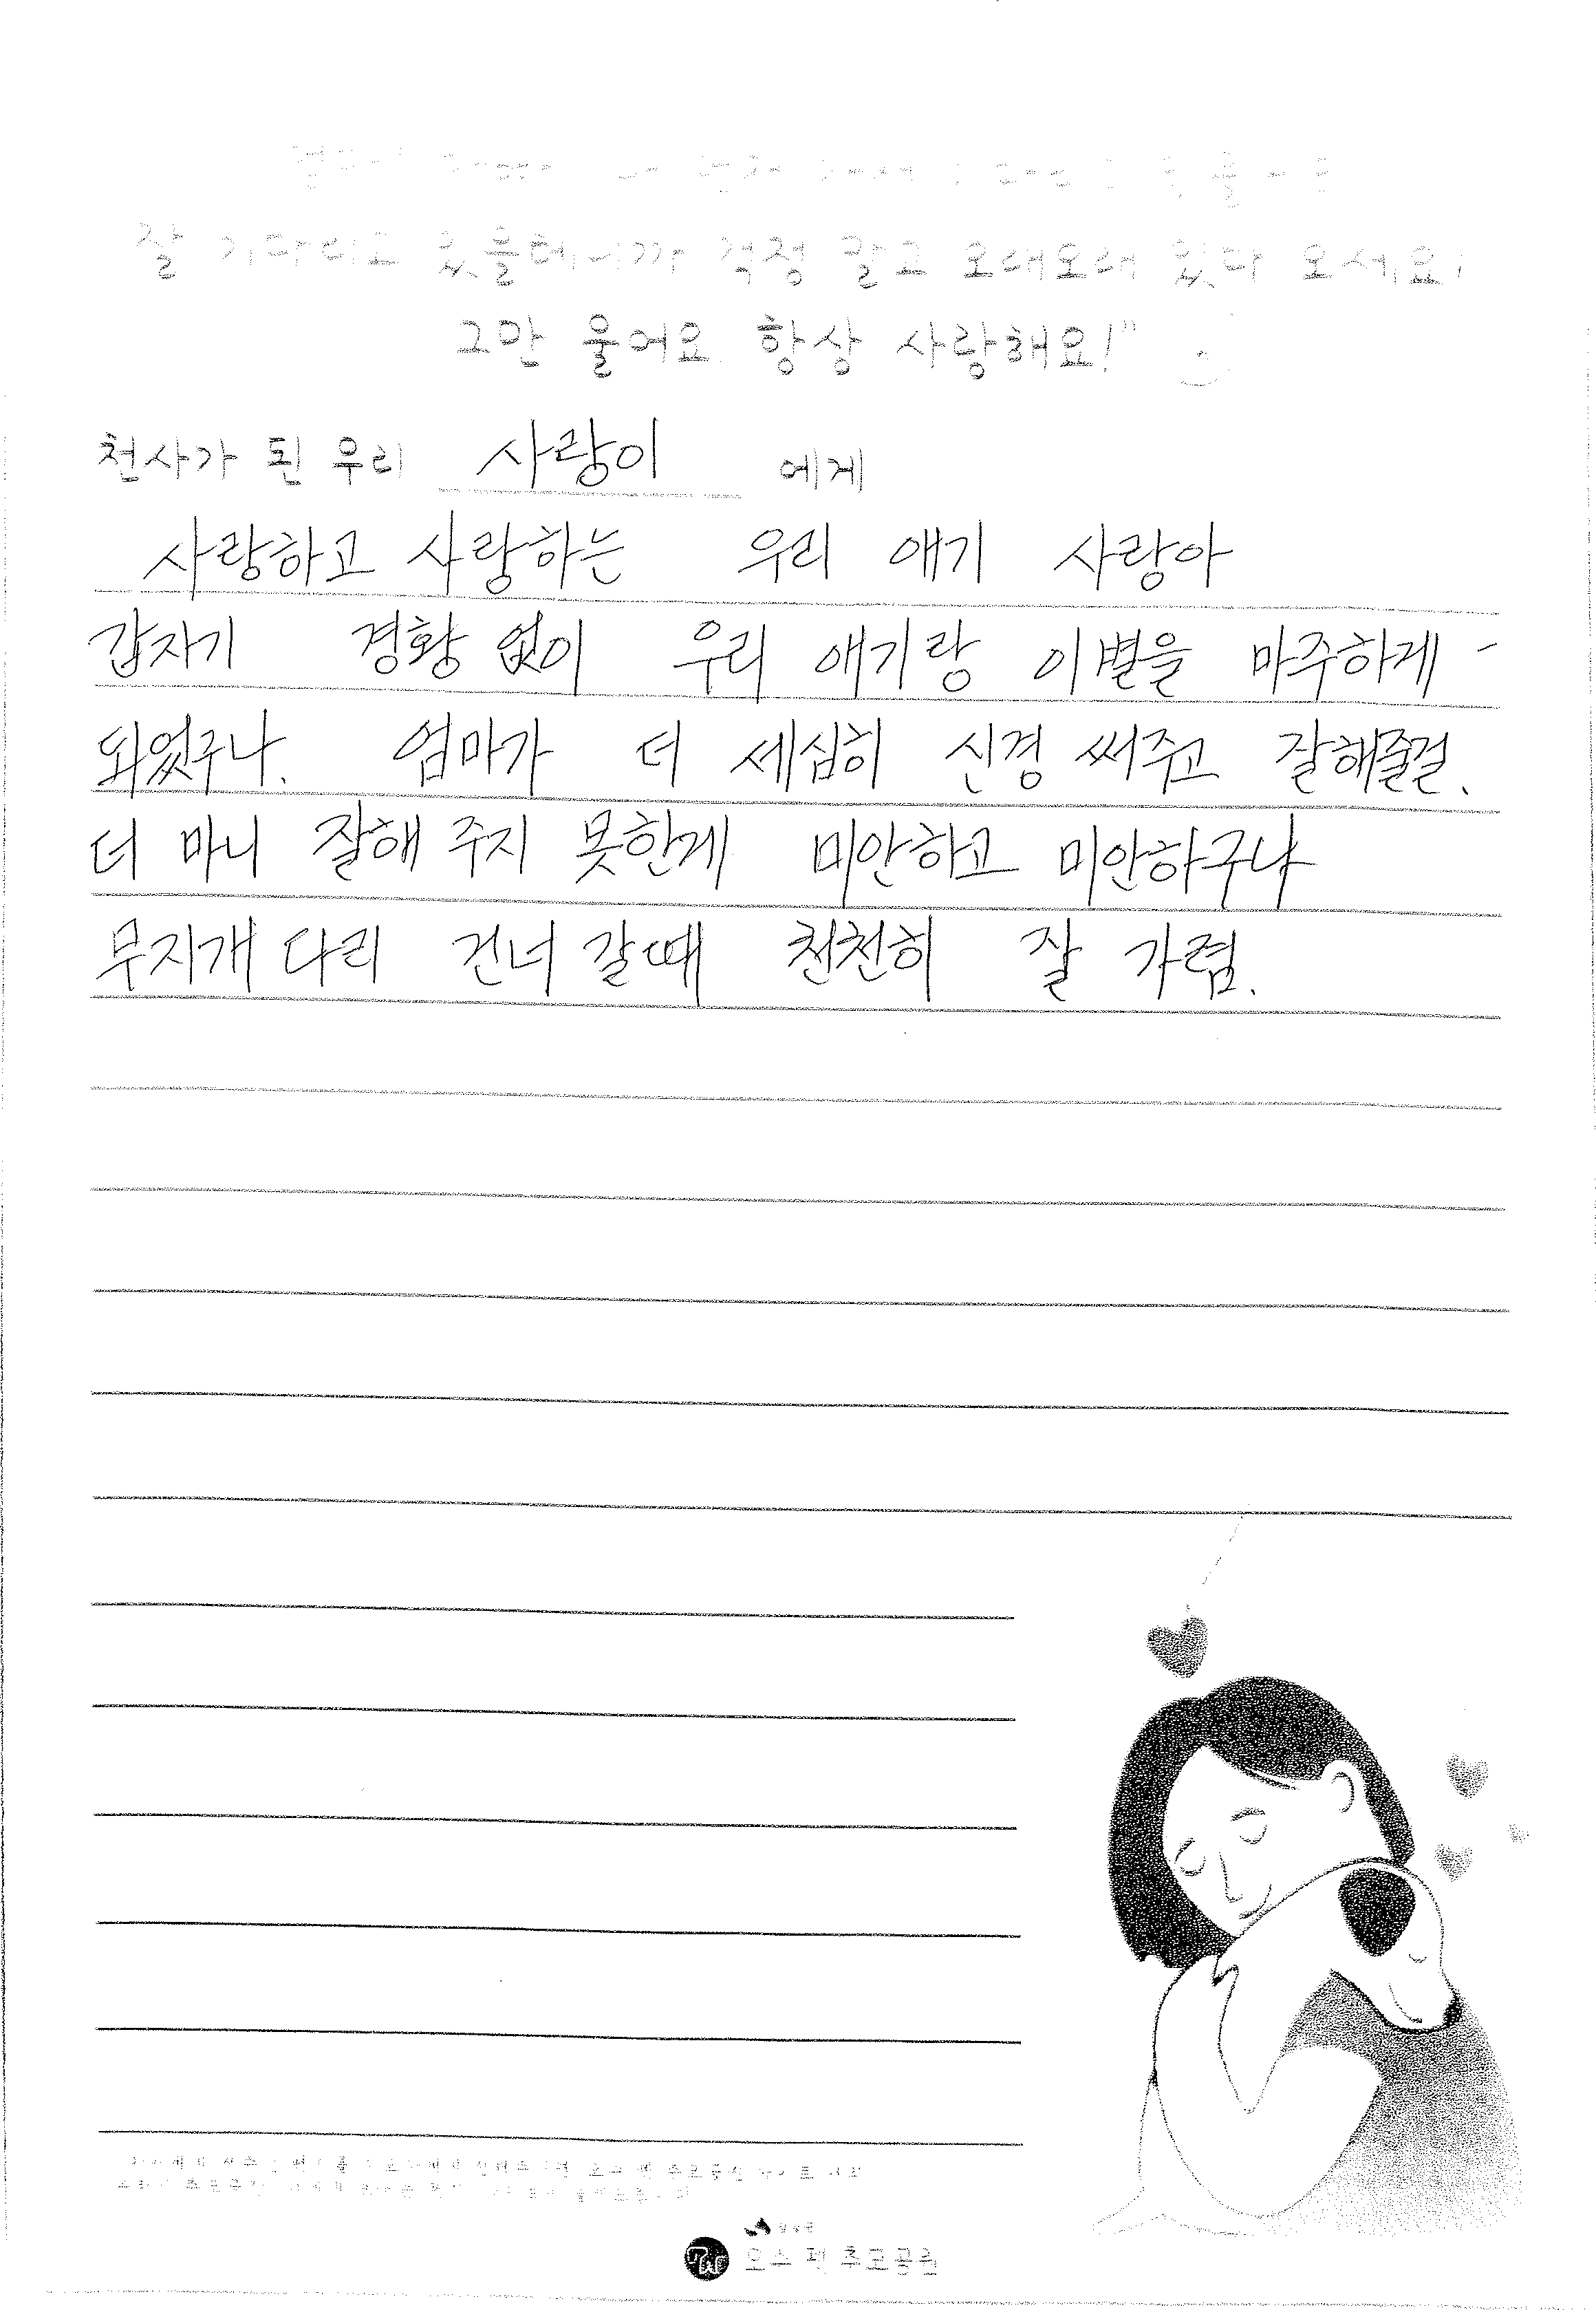 잘 기다리고 있을테니까 걱정 말고 오래오래 있다 오세요!
그만 울어요. 항상 사랑해요!"
천사가 된 우리 사랑이 에게
사랑하고 사랑하는 우리 애기 사랑아
갑자기 경황 없이 우리 애기랑 이별을 마주하게
되었구나. 엄마가 더 세심히 신경 써주고 잘해줄걸.
더 마니 잘해 주지 못한게 미안하고 미안하구나
무지개 다리 건너 갈때 천천히 잘 가렴.
추모공원